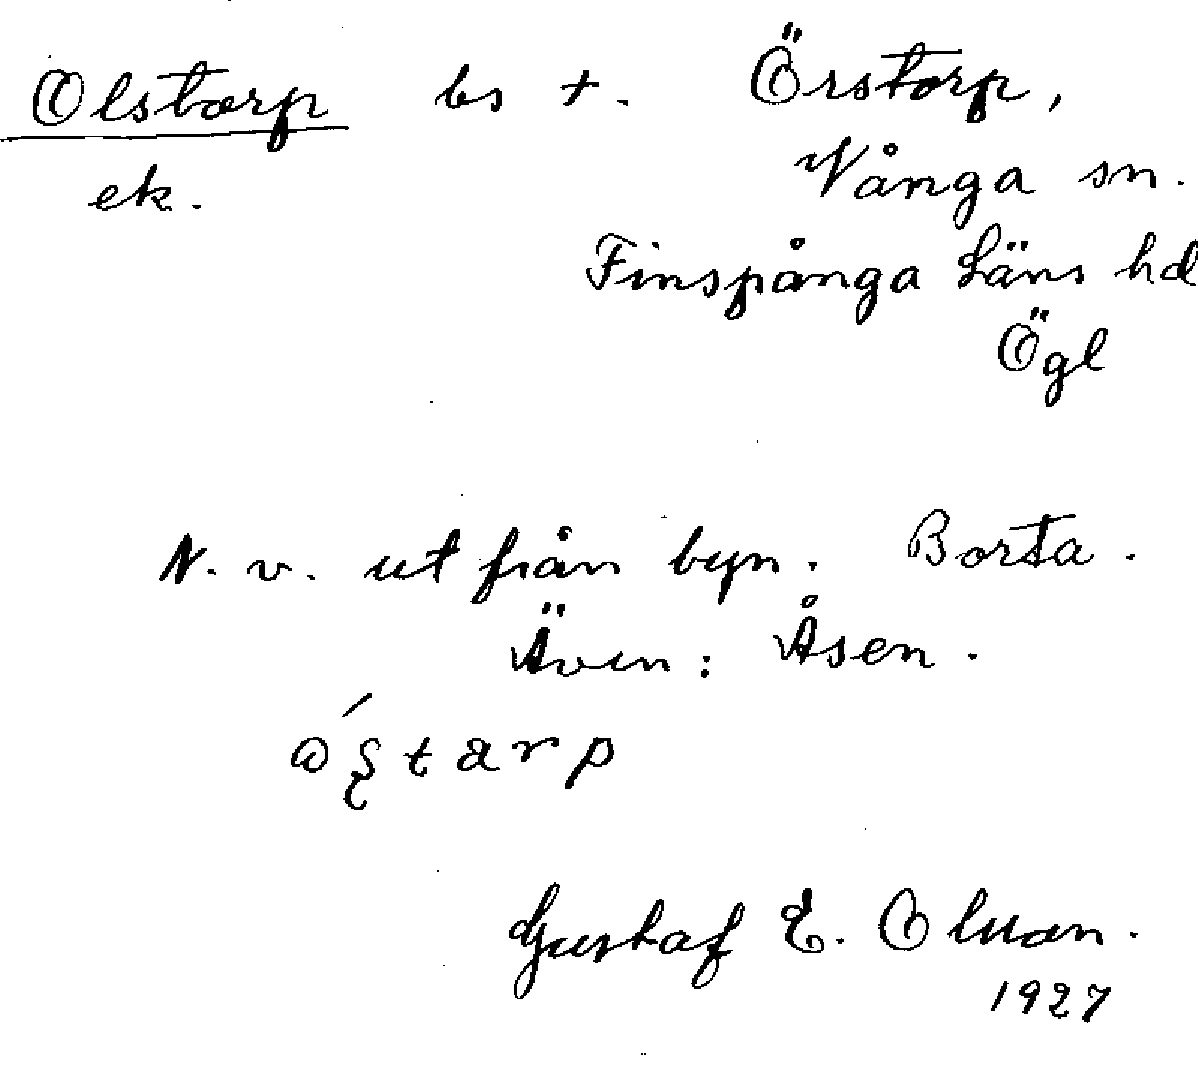 Olstorp bs +. Örstorp,
ek. Vånga sn.
Finspånga Läns hd
Ögl
N. v. ut från byn. Borta.
Även: Åsen.
Gustaf E. Olson.
1927